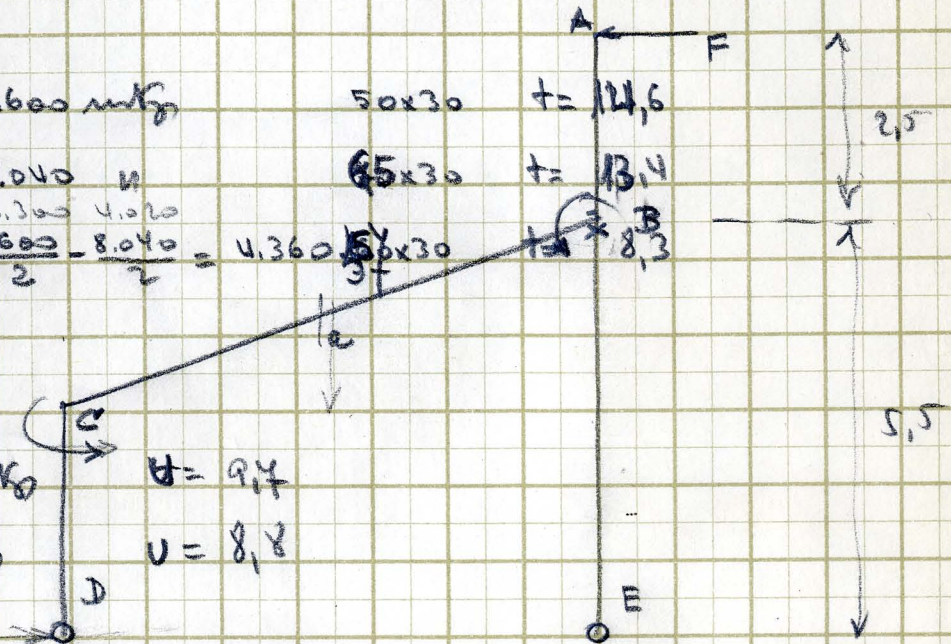 A F
.600 mKg 50x30 t= 121,6
2,5
.040 65x30 t= 13,4
.300 4.020
600/2 - 8.040/2 = 4.360 x30 B 8,3
a
C
5,5
= 9,7
U = 8,8
D E